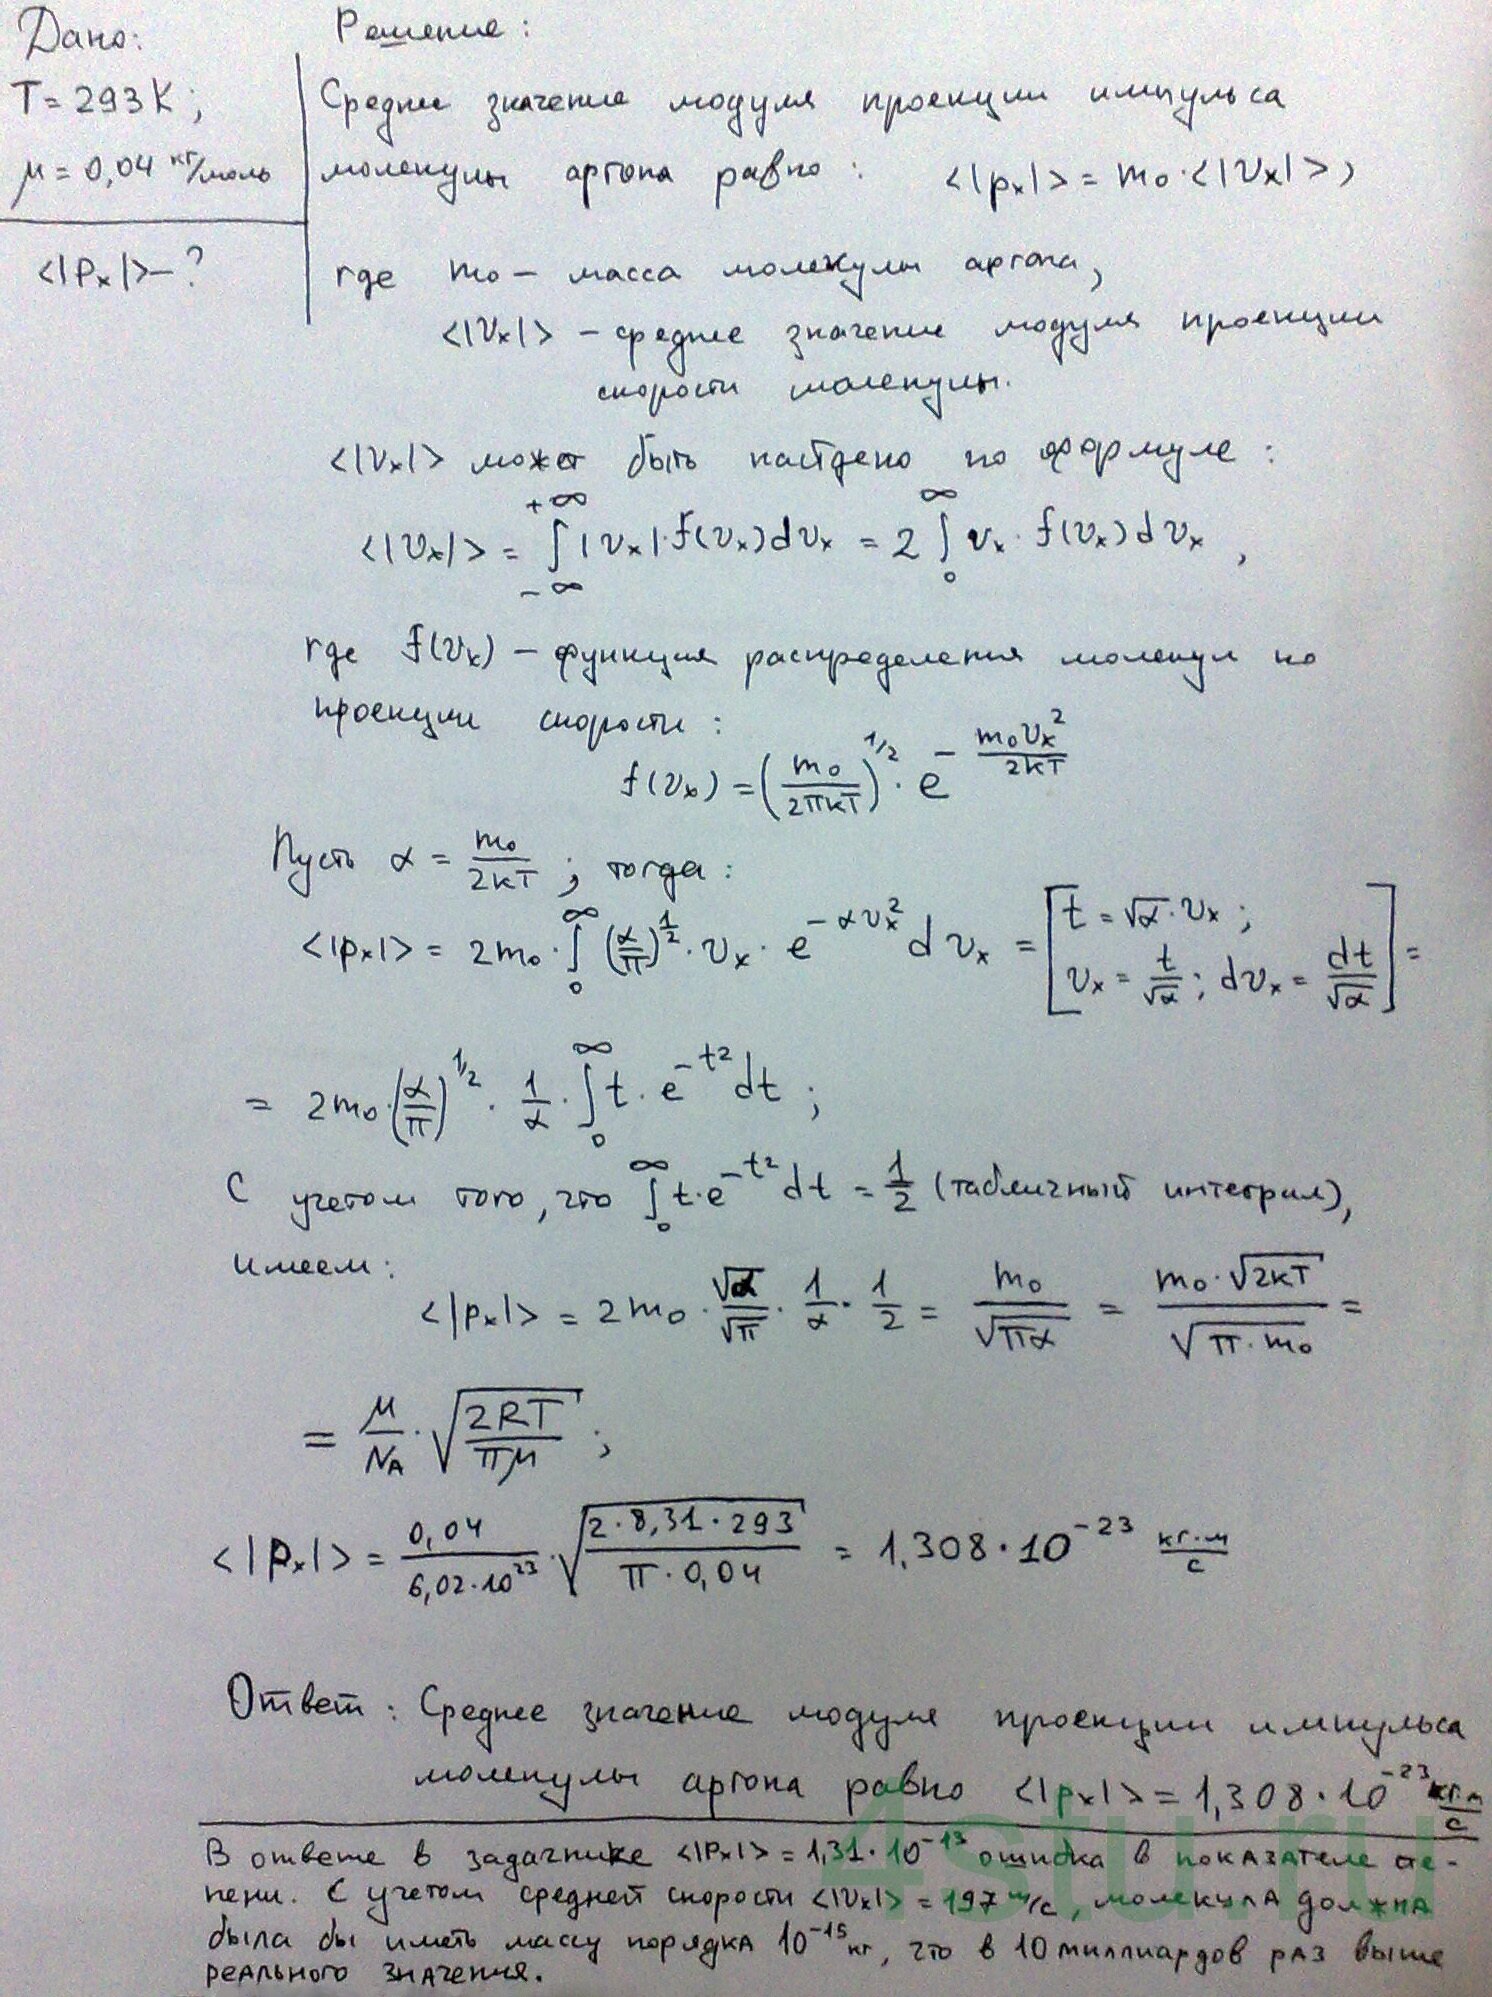 Дано:
T = 293 K;
μ = 0,04 кг/моль
<|pₓ|> – ?
Решение:
Среднее значение модуля проекции импульса
молекулы аргона равно: <|pₓ|> = m₀·<|vₓ|>,
где m₀ – масса молекулы аргона,
<|vₓ|> – среднее значение модуля проекции
скорости молекулы.
<|vₓ|> может быть найдено по формуле:
<|vₓ|> = ∫_{-∞}^{+∞} |vₓ|·f(vₓ)dvₓ = 2 ∫_0^∞ vₓ·f(vₓ)dvₓ,
где f(vₓ) – функция распределения молекул по
проекции скорости:
f(vₓ) = (m₀/2πkT)^{1/2}·e^{-m₀vₓ²/2kT}
Пусть α = m₀/2kT; тогда:
<|pₓ|> = 2m₀·∫_0^∞ (α/π)^{1/2}·vₓ·e^{-αvₓ²}dvₓ = [t = √α·vₓ; vₓ = t/√α; dvₓ = dt/√α] =
= 2m₀·(α/π)^{1/2}·1/α·∫_0^∞ t·e^{-t²}dt;
С учетом того, что ∫_0^∞ t·e^{-t²}dt = 1/2 (табличный интеграл),
имеем:
<|pₓ|> = 2m₀·√α/√π·1/α·1/2 = m₀/√(πα) = m₀·√(2kT)/√(π·m₀) =
= μ/N_A·√(2RT/πμ);
<|pₓ|> = 0,04/(6,02·10²³)·√(2·8,31·293/(π·0,04)) = 1,308·10⁻²³ кг·м/с
Ответ: Среднее значение модуля проекции импульса
молекулы аргона равно <|pₓ|> = 1,308·10⁻²³ кг·м/с
В ответе в задачнике <|pₓ|> = 1,31·10⁻¹³ ошибка в показателе сте-
пени. С учетом средней скорости <|vₓ|> = 197 м/с, молекула должна
была бы иметь массу порядка 10⁻¹⁵ кг, что в 10 миллиардов раз выше
реального значения.
4stu.ru